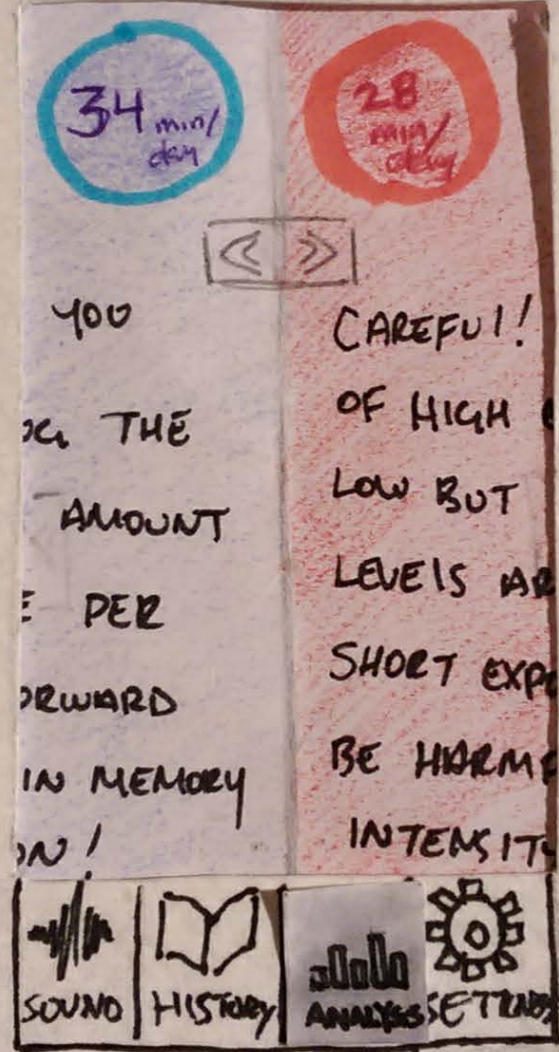 34 min/
day
28
min/
day
<< >>
YOU
THE
AMOUNT
PER
ORWARD
IN MEMORY
ON!
CAREFUl!
OF HIGH
LOW BUT
LEVElS AR
SHORT EXP
BE HARM
INTENSIT
SOUND
HISTORY
ANALYSIS
SETTINGS